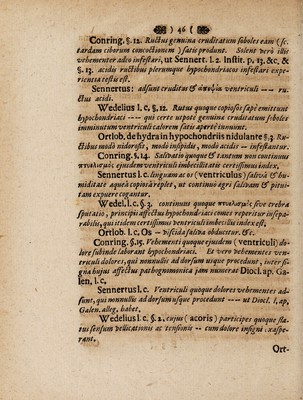 46
Conring. §. 12. Ructus genuina cruditatum soboles eam (sc.
tardam ciborum concoctionem) satis produnt. Solent verò illis
vehementer adeo infestari, ut Sennert. l. 2. Instit. p. 13. &c, &
§. 13. acidis ructibus plerumque hypochondriacos infestari expe-
rientia testis est.
Sennertus: adsunt cruditas & ἀπεψία ventriculi ---- ru-
ctus acidi.
Wedelius l. c. §. 12. Rutus quoque copiosos sapè emittunt
hypochondriaci ---- qui certe utpote genuina cruditatum soboles
imminutum ventriculi calorem satis apertè innuunt.
Ortlob. de hydra in hypochondriis nidulante §. 3. Ru-
ctibus modò nidorosis, modò insipidis, modò acidis -- infestantur.
Conring. §. 14. Salivatio quoque & tantum non continuus
πτυαλισμὸς ejusdem ventriculi imbecillitatis certissimus index.
Sennertus l. c. linguam ac os (ventriculus) salivâ & hu-
miditate aqueâ copiosâ replet, ut continuò ageri salivam & pitui-
tam expuere cogantur.
Wedel. l. c. §. 3. continuus quoque πτυαλισμὸς sive crebra
sputatio, principiò affectus hujus adstantis comes reperitur insepa-
rabilis, qui itidem certissimus ventriculi imbecillis index est.
Ortlob. l. c. Os -- viscida saliva obducitur. &c.
Conring. §. 15. Vehementi quoque ejusdem (ventriculi) do-
lore subinde laborant hypochondriaci. Et vero vehementes ven-
triculi dolores, qui nonnullis ad dorsum usque procedunt, inter si-
gna hujus affectus pathognomonica jam numerat Diocl. ap. Ga-
len. l. c.
Sennertus l. c. Ventriculi quoque dolores vehementes ad-
sunt, qui nonnullis ad dorsum usque procedunt ---- ut Diocl. l. ap.
Galen. alleg. habet.
Wedelius l. c. §. 2. cujus (acoris) particeps quoque fla-
tus sensum vellicationis ac tensionis -- cum dolore insigni: exaspe-
rant.
Ort-